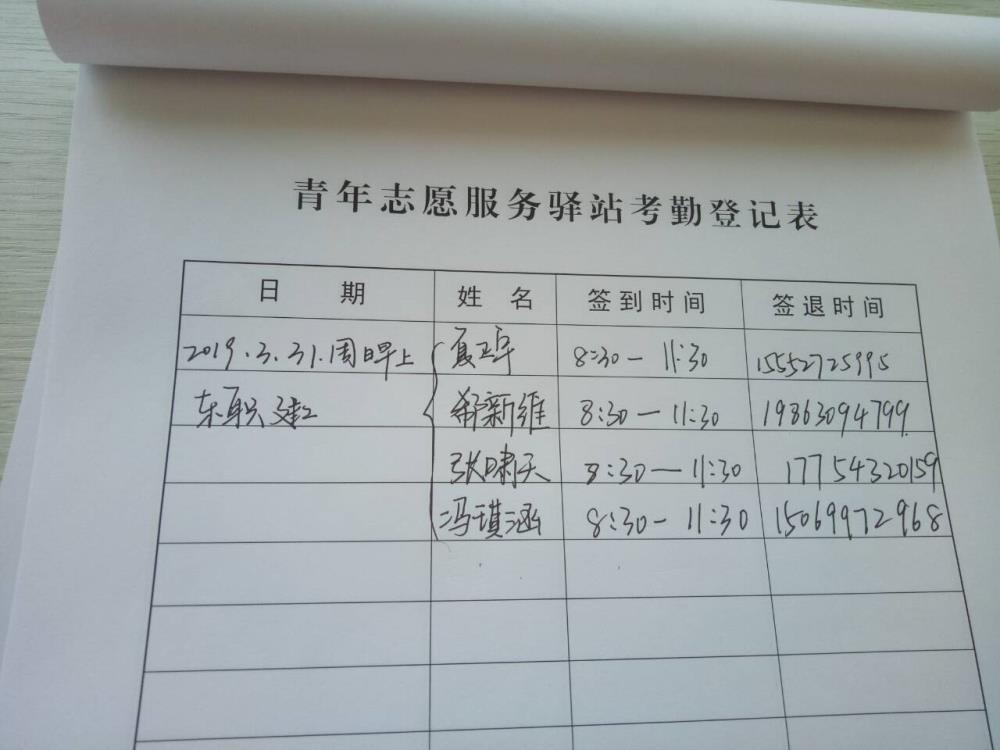 青年志愿服务驿站考勤登记表
日 期 姓 名 签到时间 签退时间
2019.3.31.周日早上 夏正宇 8:30 — 11:30 15552725995
东职 新维 8:30 — 11:30 19863094799
张啸天 8:30 — 11:30 17754320159
冯琪涵 8:30 — 11:30 15069972968